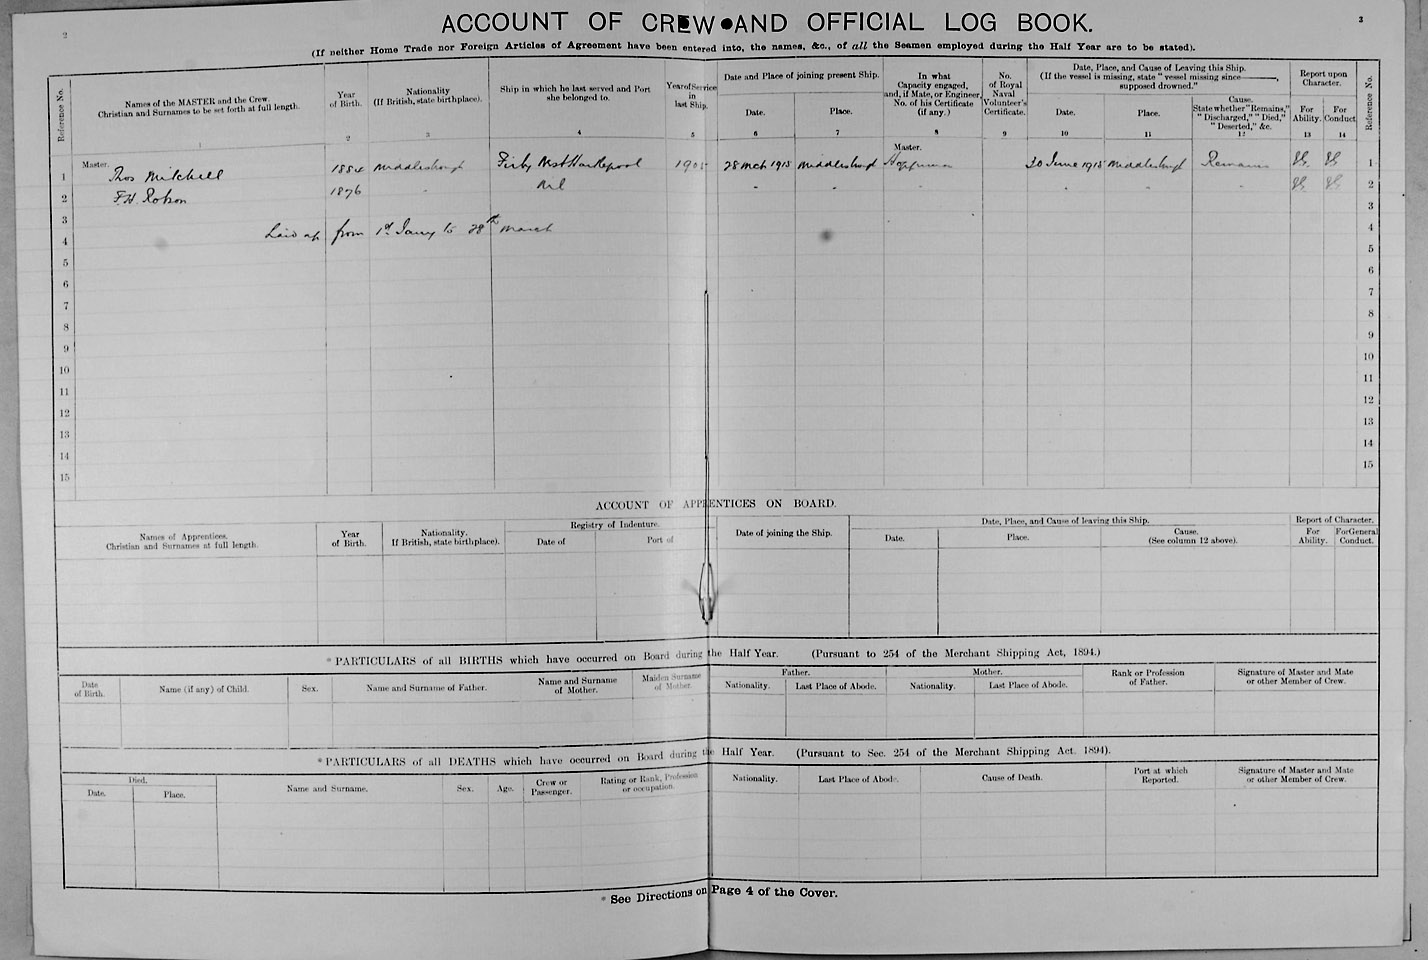 2
3
ACCOUNT OF CREW AND OFFICIAL LOG BOOK.
(If neither Home Trade nor Foreign Articles of Agreement have been entered into, the names, &c., of all the Seamen employed during the Half Year are to be stated).
Reference No.
Names of the MASTER and the Crew. Christian and Surnames to be set forth at full length.
Year of Birth.
Nationality (If British, state birthplace).
Ship in which he last served and Port she belonged to.
Year of Service in last Ship.
Date and Place of joining present Ship.
Date.
Place.
In what Capacity engaged, and, if Mate, or Engineer, No. of his Certificate (if any.)
No. of Royal Naval Volunteer's Certificate.
Date, Place, and Cause of Leaving this Ship. (If the vessel is missing, state "vessel missing since ———, supposed drowned."
Date.
Place.
Cause. State whether "Remains," "Discharged," "Died," "Deserted," &c.
Report upon Character.
For Ability.
For Conduct
Reference No.
1 2 3 4 5 6 7 8 9 10 11 12 13 14
Master.
Master.
1 Thos Mitchell 1884 Middlesbrough West Hartlepool 28 Mch 1915 Middlesbrough 30 June 1915 Middlesbrough Remains VG VG 1
2 F H Robson 1876 " Nil " " " " " " VG VG 2
3 3
4 Laid up from 1st Jany to 28th March 4
5 5
6 6
7 7
8 8
9 9
10 10
11 11
12 12
13 13
14 14
15 15
ACCOUNT OF APPRENTICES ON BOARD.
Names of Apprentices. Christian and Surnames at full length.
Year of Birth.
Nationality. If British, state birthplace).
Registry of Indenture.
Date of
Port of
Date of joining the Ship.
Date, Place, and Cause of leaving this Ship.
Date.
Place.
Cause. (See column 12 above).
Report of Character.
For Ability.
For General Conduct.
* PARTICULARS of all BIRTHS which have occurred on Board during the Half Year. (Pursuant to 254 of the Merchant Shipping Act, 1894.)
Date of Birth.
Name (if any) of Child.
Sex.
Name and Surname of Father.
Name and Surname of Mother.
Maiden Surname of Mother.
Father.
Nationality.
Last Place of Abode.
Mother.
Nationality.
Last Place of Abode.
Rank or Profession of Father.
Signature of Master and Mate or other Member of Crew.
* PARTICULARS of all DEATHS which have occurred on Board during the Half Year. (Pursuant to Sec. 254 of the Merchant Shipping Act. 1894).
Died.
Date.
Place.
Name and Surname.
Sex.
Age.
Crew or Passenger.
Rating or Rank, Profession or occupation.
Nationality.
Last Place of Abode.
Cause of Death.
Port at which Reported.
Signature of Master and Mate or other Member of Crew.
* See Directions on Page 4 of the Cover.